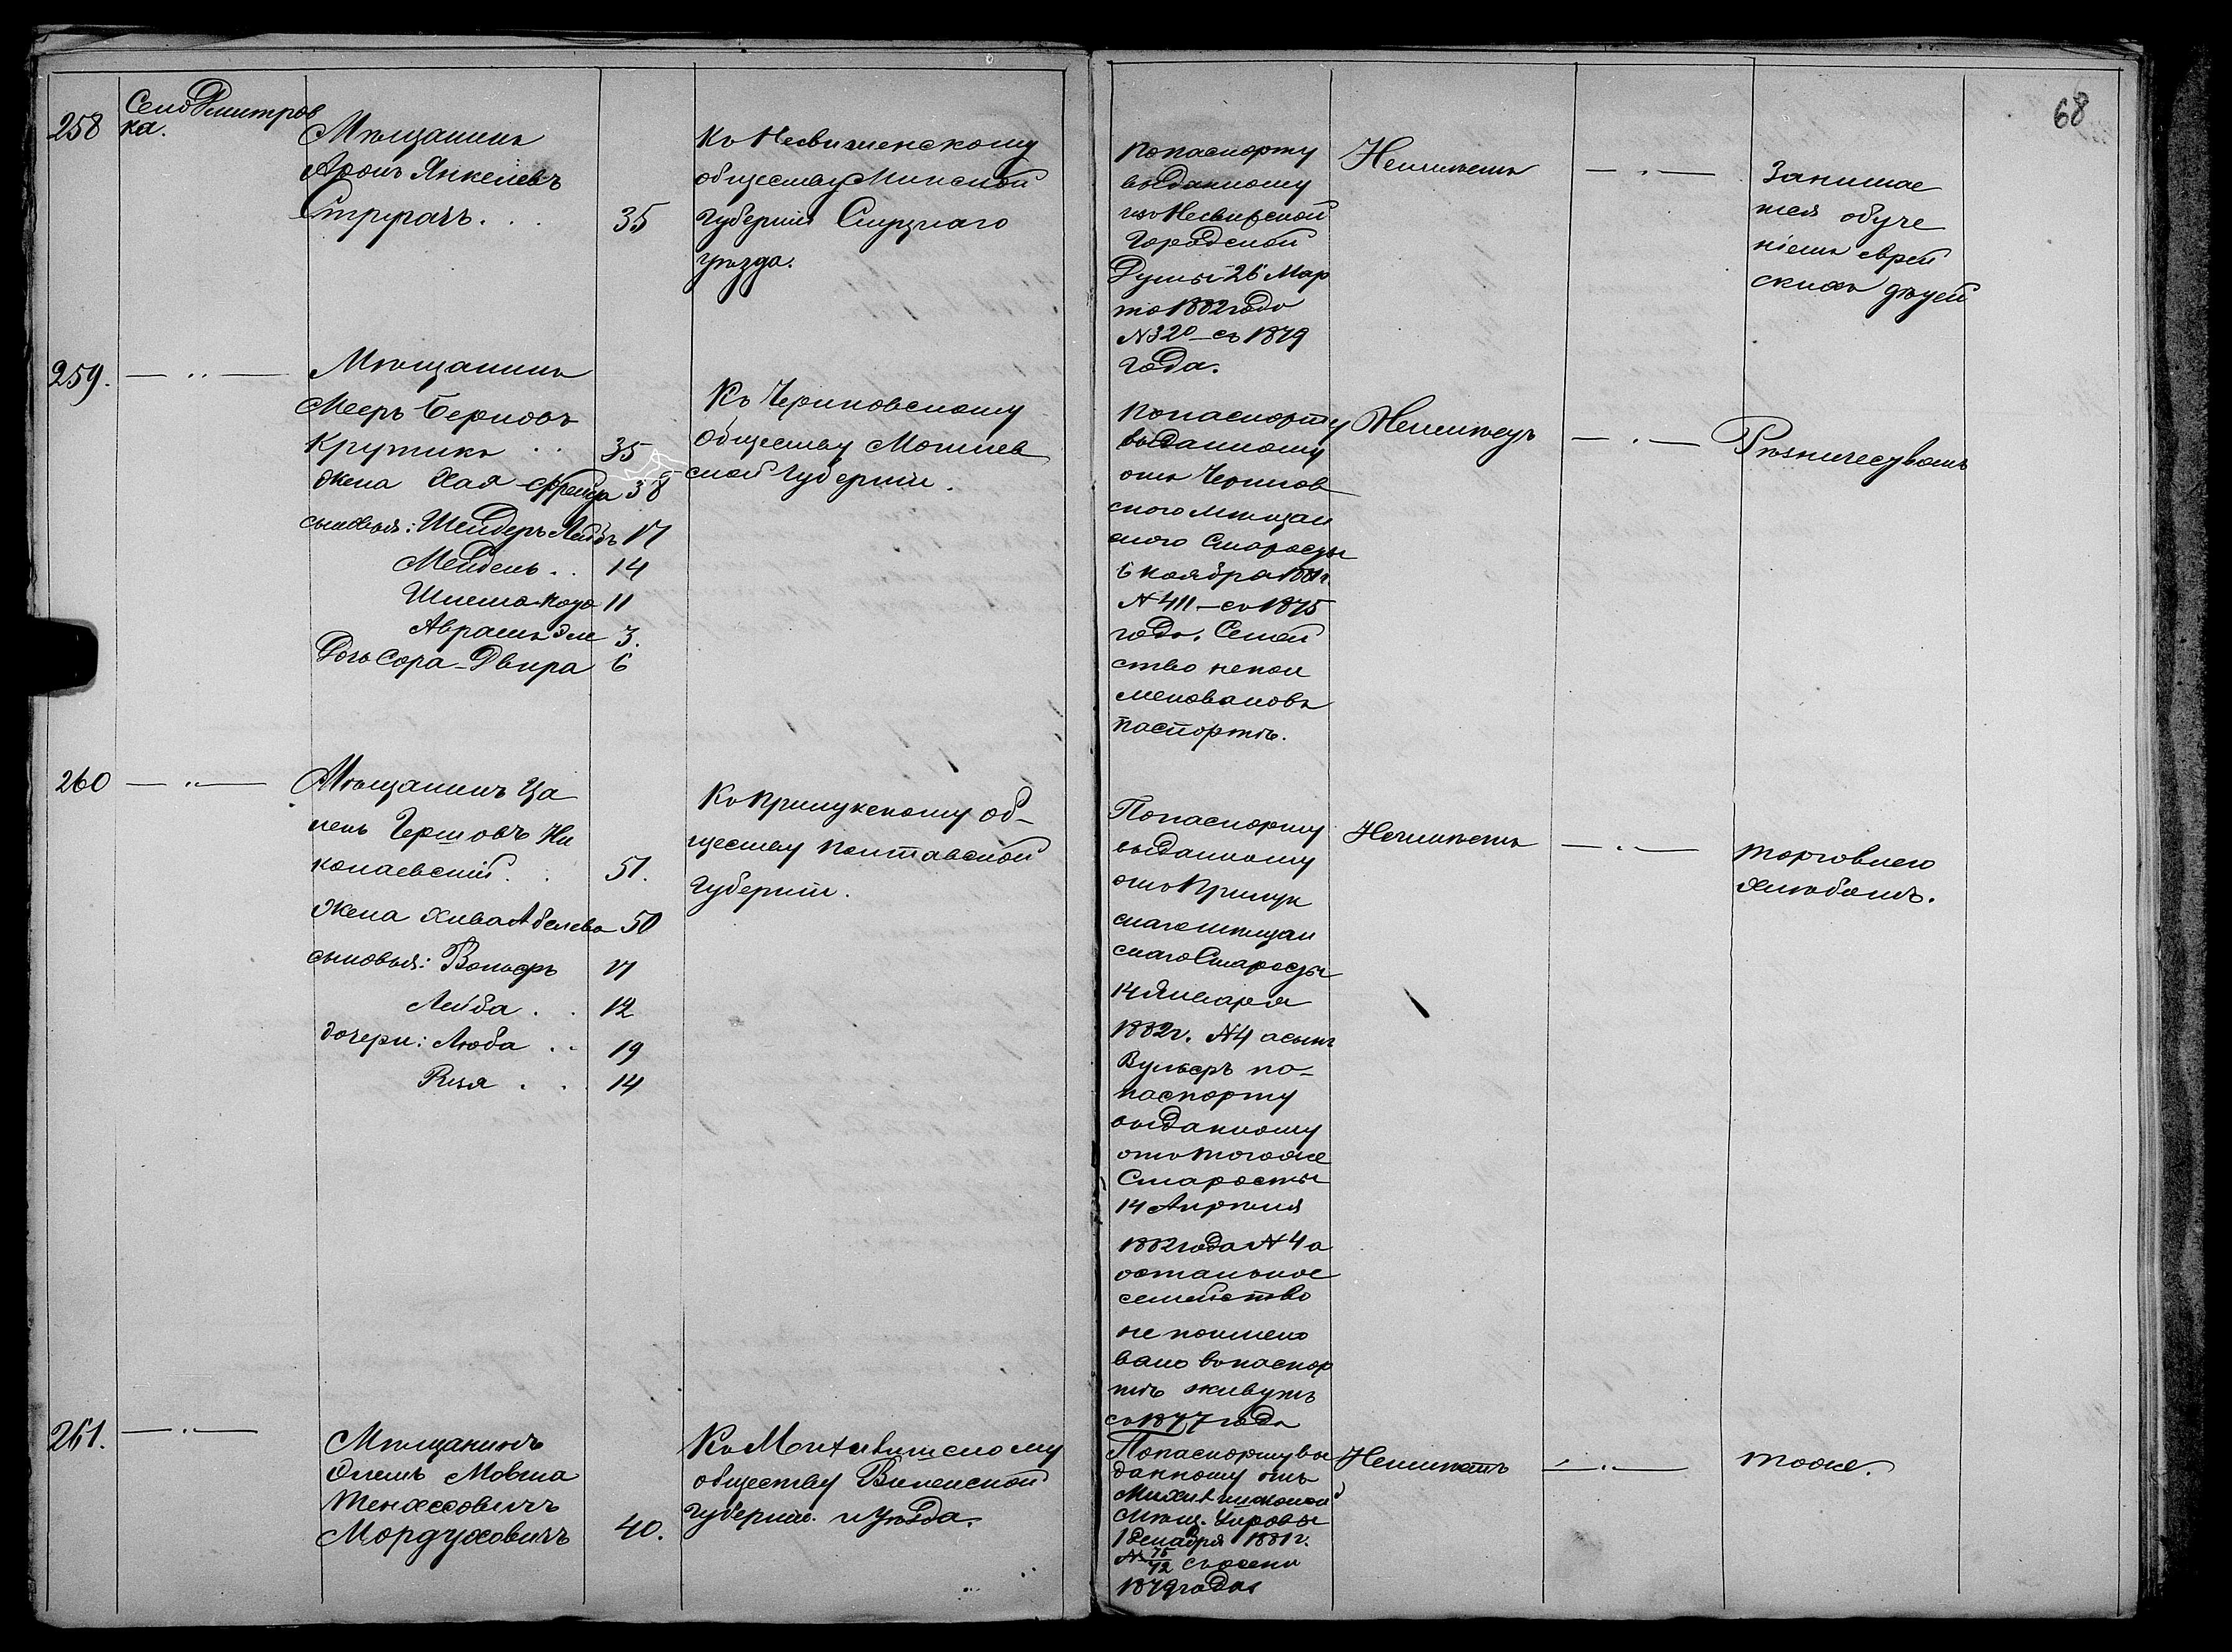 68
258
Село Дмитров
ка.
Мѣщанинъ
Аронъ Янкелевъ
35
Къ Несвиженскому
обществу Минской
губерніи Слуцкаго
уѣзда.
По паспорту
выданному
изъ Несвижской
Городской
Думы 26 Мар
та 1882 года
№ 320 – съ 1879
года.
Неимѣетъ
Занимае
тся обуче
ніемъ еврей
скихъ дѣтей
259.
Мѣщанинъ
Мееръ Берковъ
Крупникъ 35
жена Хая-Фрейда 38
сыновья: Шендеръ Лейбъ 17
Мендель 14
Шлема 11
Аврамъ 3.
Дочь Сора-Двира 6
Къ Чериковскому
Обществу Могилев
ской Губерніи.
По паспорту
выданному
отъ Чериков
ского мѣщан
ского Старосты
6 ноября 1881 г.
№ 411 – съ 1875
года. Семей
ство непои
меновановъ
паспортѣ.
Неимѣетъ
Рѣзничествомъ
260
Мѣщанинъ Ца
лель Гершовъ Ни
колаевскій 51.
жена Хива Абелева 50
сыновья: Вольфъ 17
Лейба 12
дочери: Люба 19
Рися 14
Къ Прилукскому об-
ществу Полтавской
Губерніи.
По паспорту
выданному
отъ Прилук
скаго мѣщан
скаго Старосты
14 Января
1882 г. № 4 а сынъ
Вульфъ по-
паспорту
выданному
отъ того же
Старосты
14 Апрѣля
1882 года № 4 а
остальное
семейство
не поимено
вано въ паспор
тѣ живутъ
съ 1877 года
Неимѣетъ
торговлею
хлѣбомъ.
261.
Мѣщанинъ
Мовша
Мордуховичъ 40.
обществу Виленской
губерніи и уѣзда.
По паспорту вы
данному отъ
Мѣщ. Управы
1 декабря 1881 г.
№ 75/42 съ осени
1879 года
Неимѣетъ
тоже.